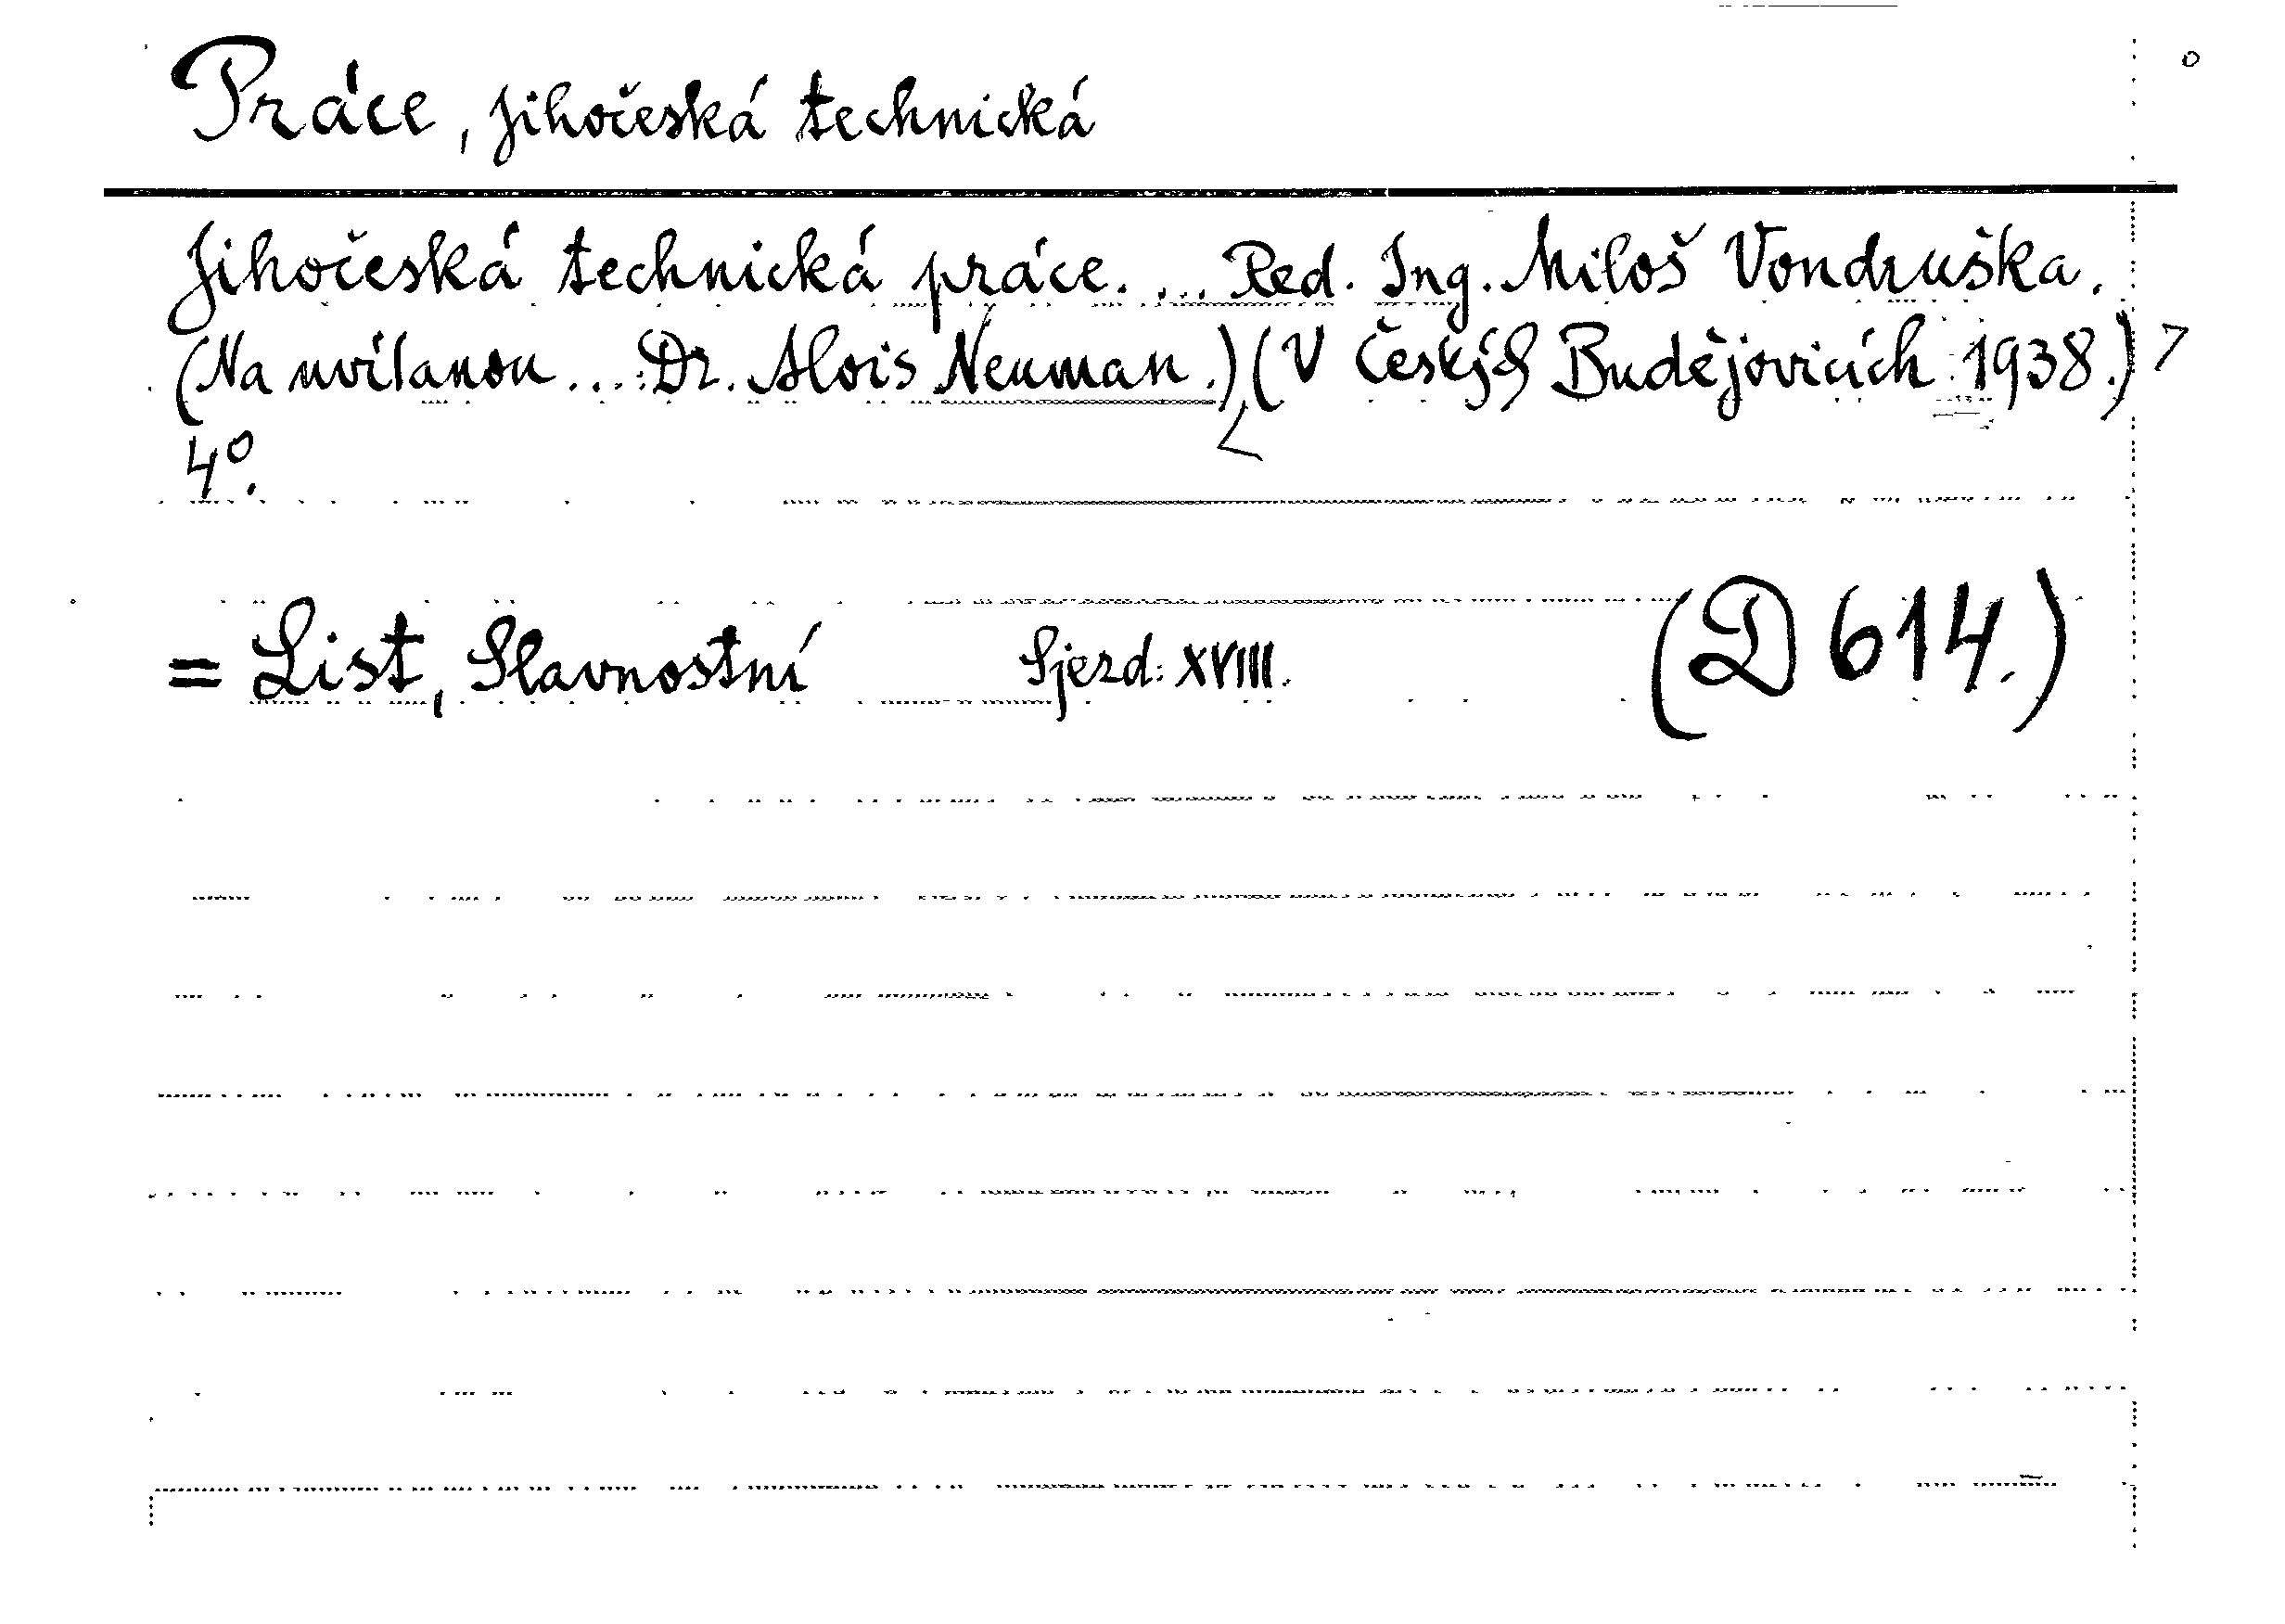 Práce, jihočeská technická
Jihočeská technická práce. ... Red. Ing. Miloš Vondruška.
(Na uvítanou ... : Dr. Alois Neuman.) (V Českých Budějovicích 1938.)
4º.
= List, Slavnostní Sjezd: XVIII. (D 614.)